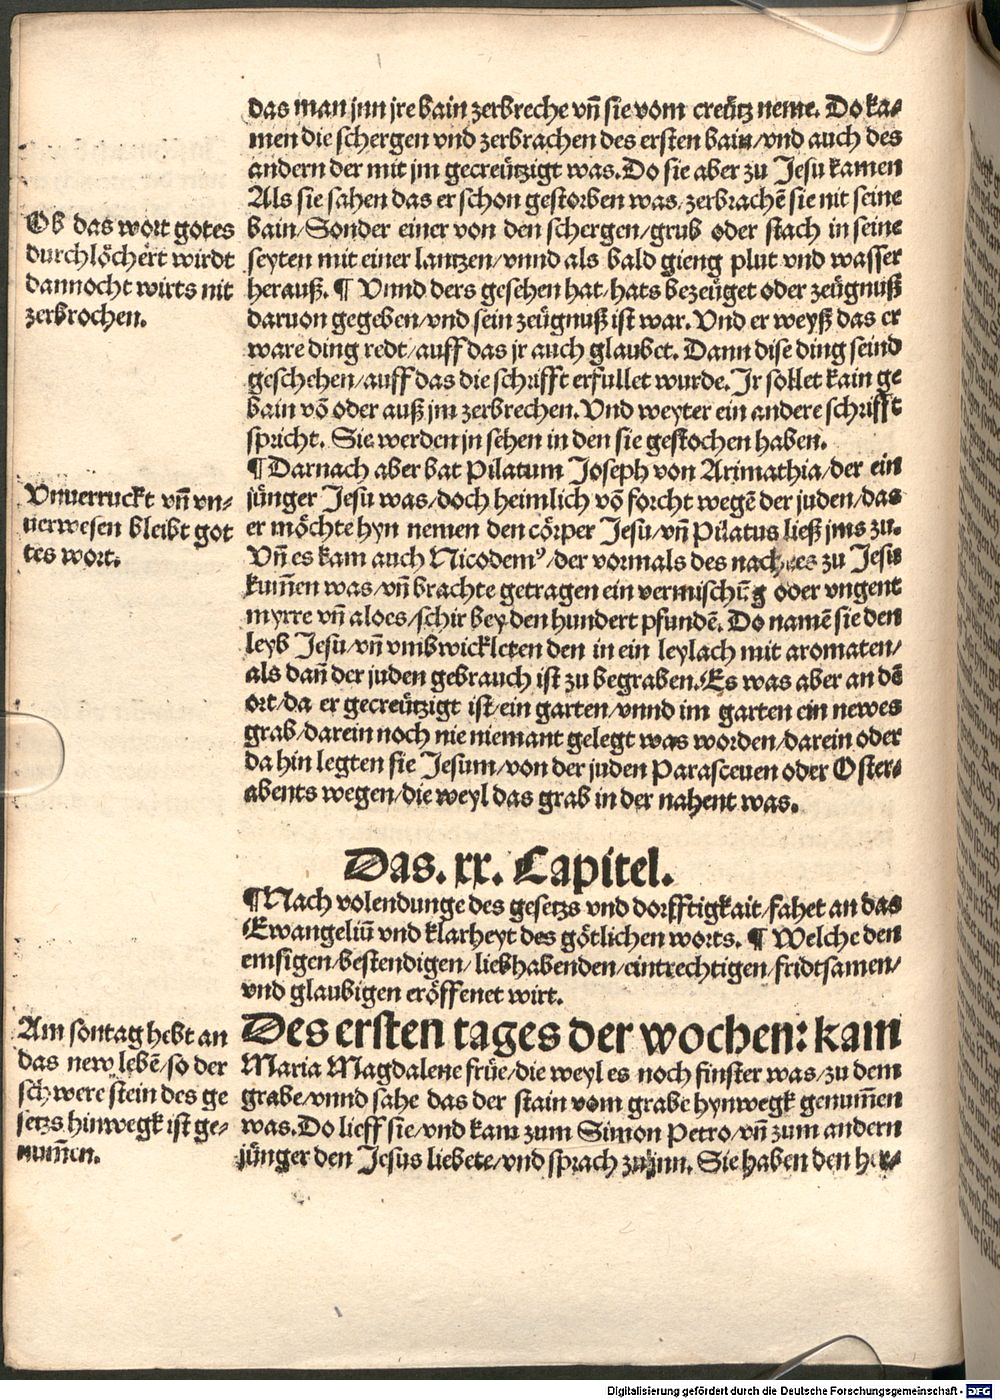 das man jnn jre bain zerbreche vn̄ sie vom creütz neme. Do ka⸗
men die schergen vnd zerbrachen des ersten bain/vnd auch des
andern der mit jm gecreützigt was. Do sie aber zu Jesu kamen
Als sie sahen das er schon gestorben was/zerbrachē sie nit seine
bain/Sonder einer von den schergen/grub oder stach in seine
seyten mit einer lantzen/vnnd als bald gieng plut vnd wasser
herauß. ¶ Vnnd ders gesehen hat/hats bezeüget oder zeügnuß
daruon gegeben/vnd sein zeügnuß ist war. Vnd er weyß das er
ware ding redt/auff das jr auch glaubet. Dann dise ding seind
geschehen/auff das die schrifft erfullet wurde. Jr sollet kain ge
bain vō oder auß jm zerbrechen. Vnd weyter ein andere schrifft
spricht. Sie werden jn sehen in den sie gestochen haben.
Ob das wort gotes
durchlöchert wirdt
dannocht wirts nit
zerbrochen.
¶Darnach aber bat Pilatum Joseph von Arimathia/der ein
jünger Jesu was/doch heimlich vō forcht wegē der juden/das
er möchte hyn nemen den cörper Jesu/vn̄ Pilatus ließ jms zu.
Vn̄ es kam auch Nicodemꝰ/der vormals des nachtes zu Jesu
kum̄en was/vn̄ brachte getragen ein vermischūg oder vngent
myrre vn̄ aloes/schir bey den hundert pfundē. Do namē sie den
leyb Jesu/vn̄ vmbwickleten den in ein leylach mit aromaten/
als dan̄ der juden gebrauch ist zu begraben. Es was aber an dē
ort/da er gecreützigt ist/ein garten/vnnd im garten ein newes
grab/darein noch nie niemant gelegt was worden/darein oder
da hin legten sie Jesum/von der juden Parasceuen oder Oster⸗
abents wegen/die weyl das grab in der nahent was.
Vnuerruckt vn̄ vn⸗
uerwesen bleibt got
tes wort.
Das. xx. Capitel.
¶Nach volendunge des gesetzs vnd dorfftigkait/fahet an das
Ewangeliū vnd klarheyt des götlichen worts. ¶ Welche den
emsigen/bestendigen/liebhabenden/eintrechtigen/fridtsamen/
vnd glaubigen eröffenet wirt.
Des ersten tages der wochen: kam
Maria Magdalene früe/die weyl es noch finster was/zu dem
grabe/vnnd sahe das der stain vom grabe hynwegk genum̄en
was. Do lieff sie/vnd kam zum Simon Petro/vn̄ zum andern
jünger den Jesus liebete/vnd sprach zu jnn. Sie haben den her⸗
Am sontag hebt an
das new lebē/so der
schwere stein des ge
setzs hinwegk ist ge⸗
num̄en.
Digitalisierung gefördert durch die Deutsche Forschungsgemeinschaft - DFG